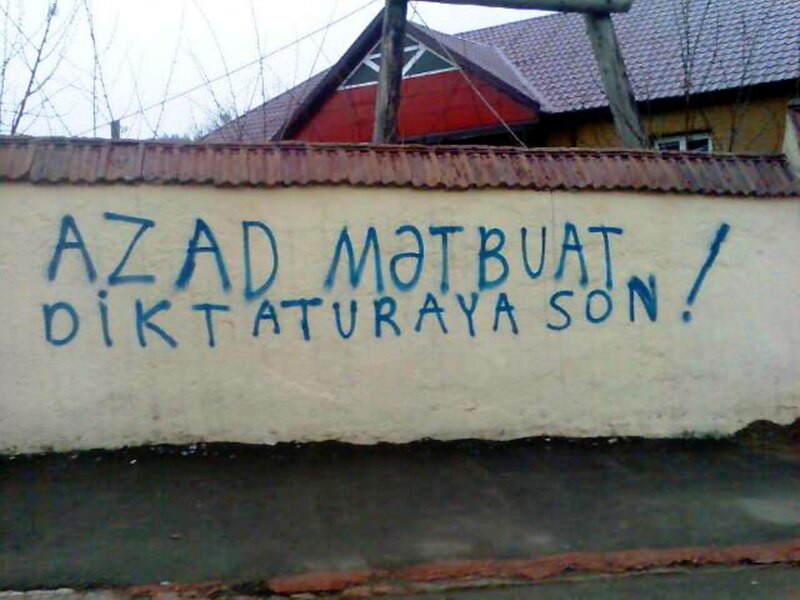 AZAD MƏTBUAT
DİKTATURAYA SON!